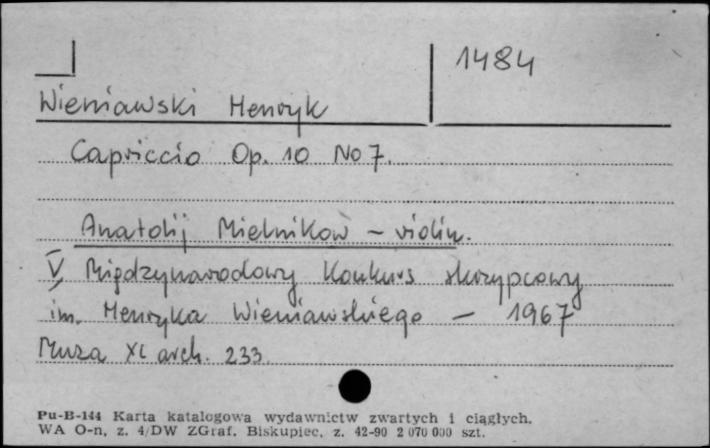 1484
Wieniawski Henryk
Capriccio Op. 10 No 7.
Anatolij Mielnikow - violin.
V Międzynarodowy Konkurs skrzypcowy
im. Henryka Wieniawskiego - 1967
Muza XL arch. 233
Pu-B-144 Karta katalogowa wydawnictw zwartych i ciągłych.
WA O-n, z. 4/DW ZGraf. Biskupiec, z. 42-90 2 070 000 szt.